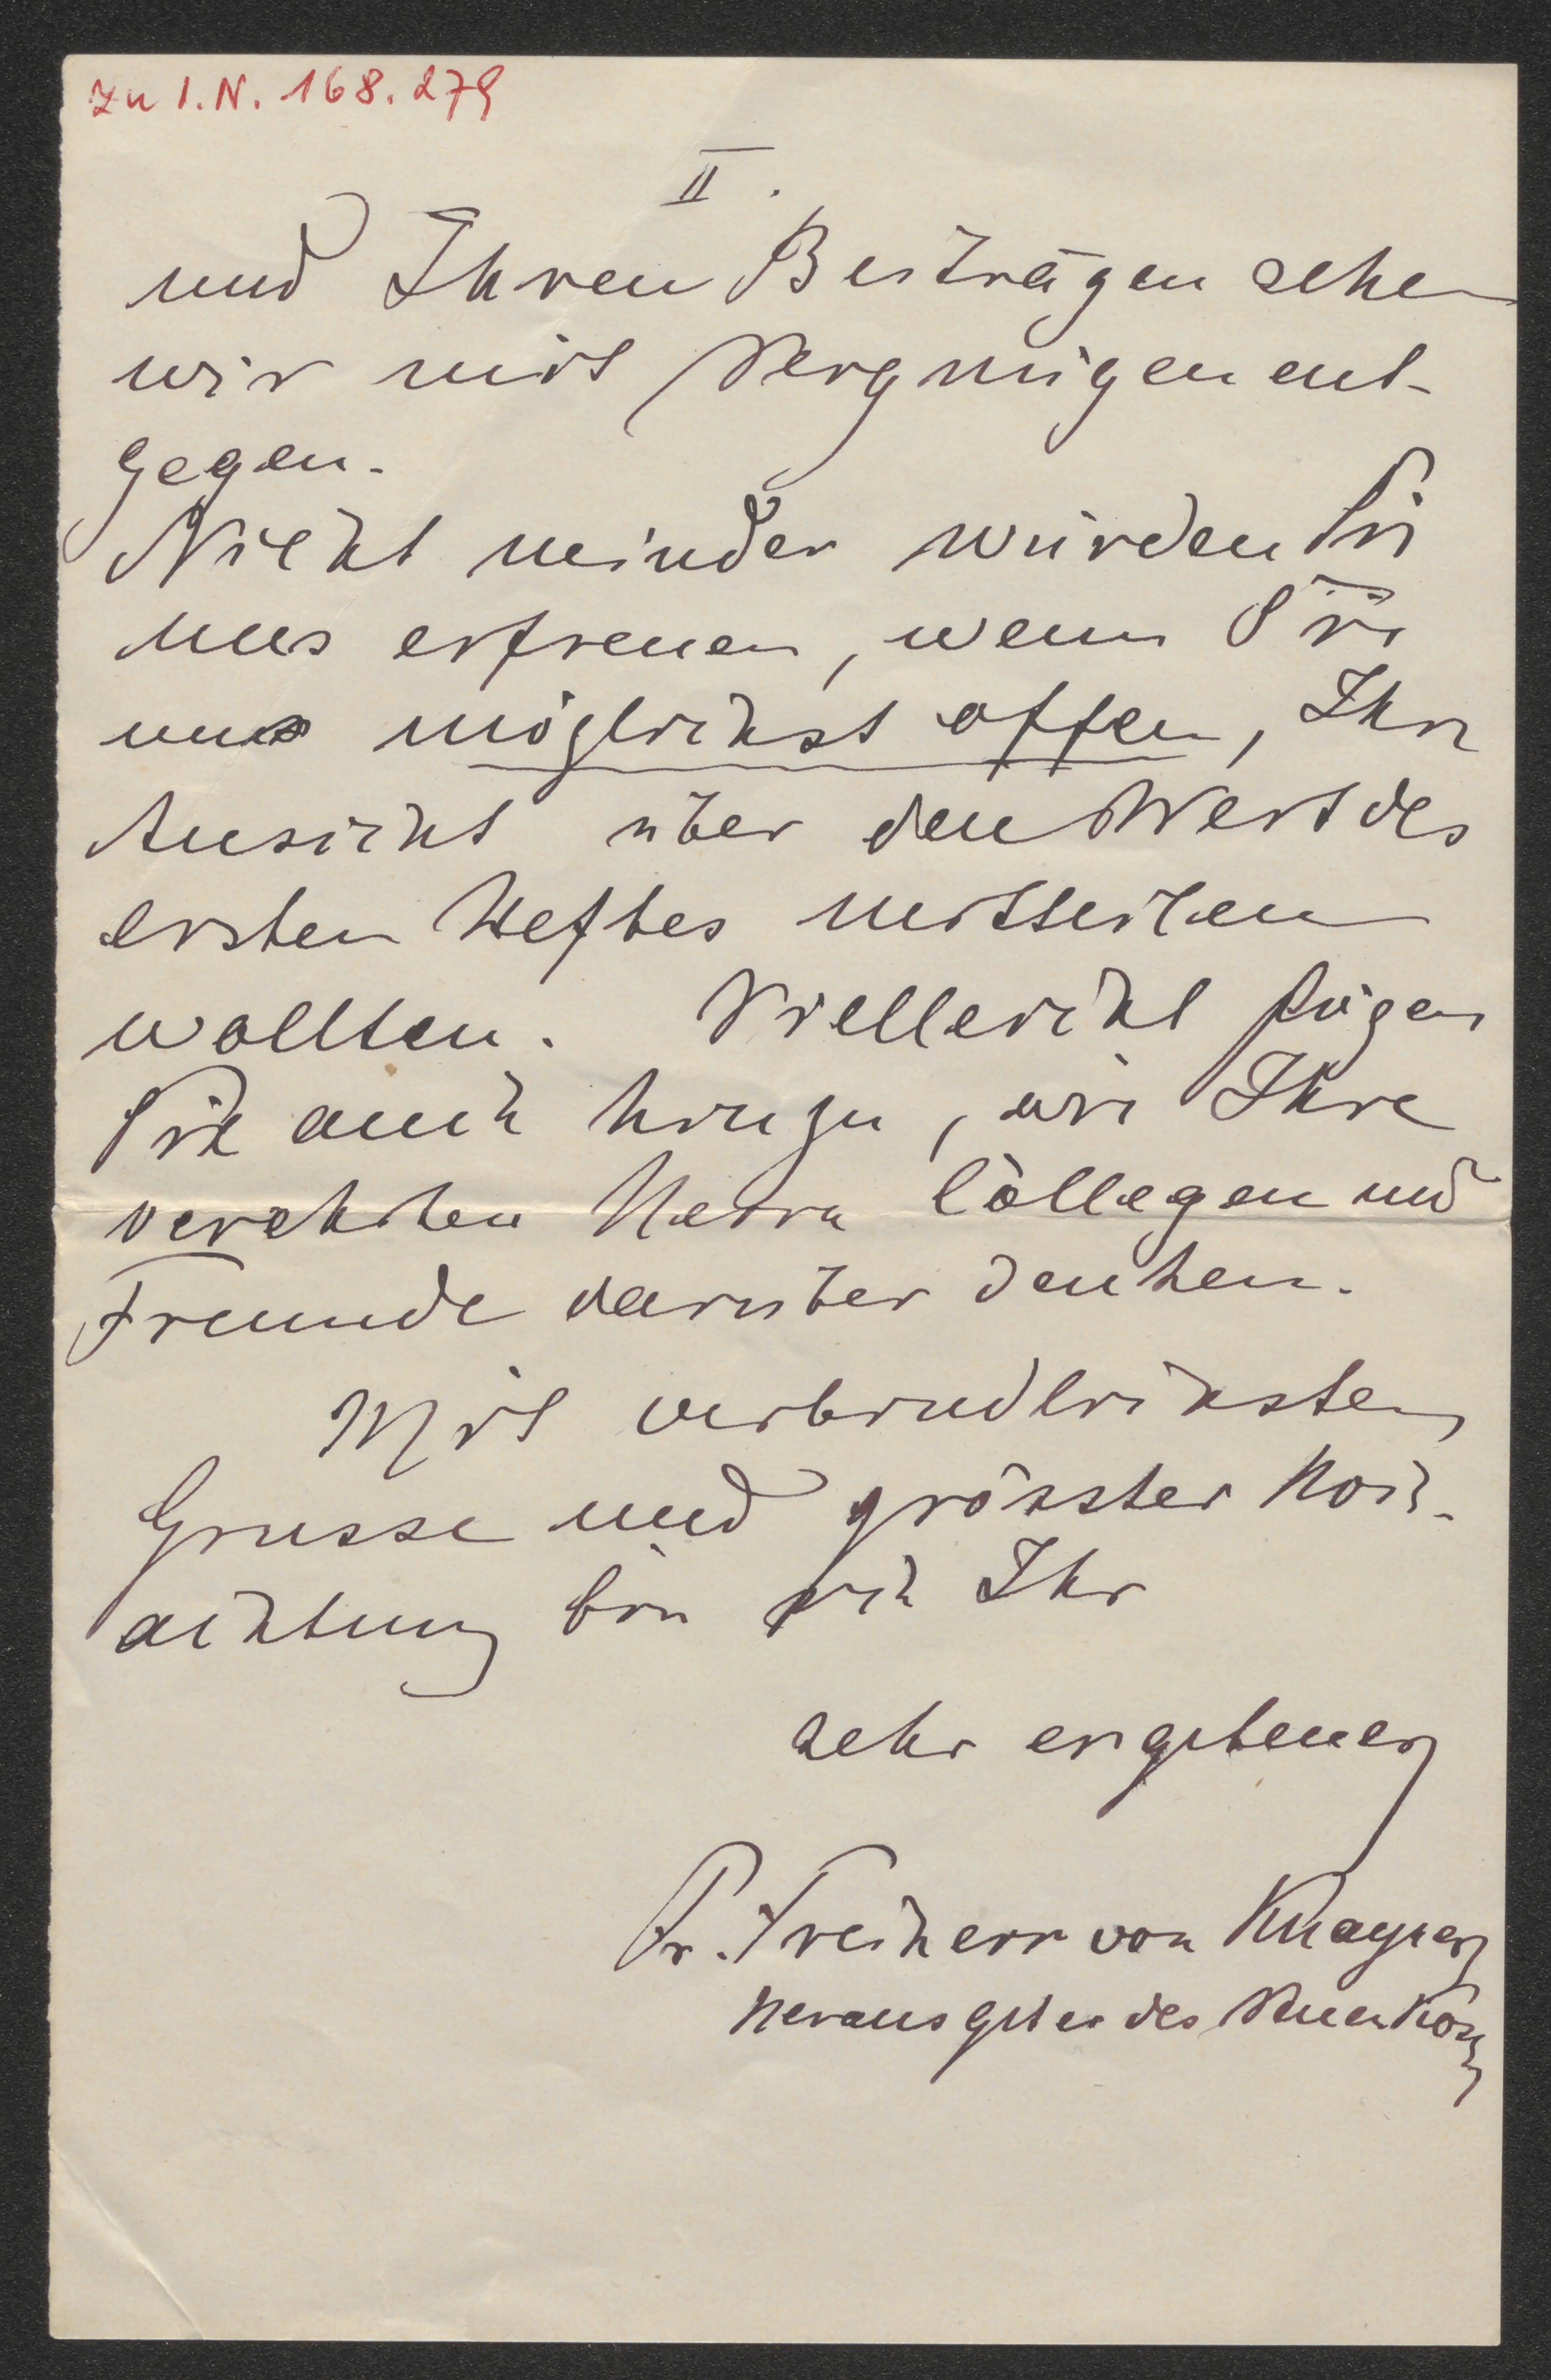 zu I.N. 168.279
II.
und Ihren Beiträgen sehen
wir mit Vergnügen ent-
gegen.
Nicht minder würden Sie
uns erfreuen, wenn Sie
uns möglichst offen, Ihre
Ansicht über den Wert des
ersten Heftes mitteilen
wollten. Vielleicht fügen
Sie auch hinzu, wie Ihre
verehrten Herrn Collegen und
Freunde darüber denken.
Mit verbindlichstem
Grusse und grösster Hoch-
achtung bin ich Ihr
sehr ergebener
Fr. Freiherr von Khayner
Herausgeber des